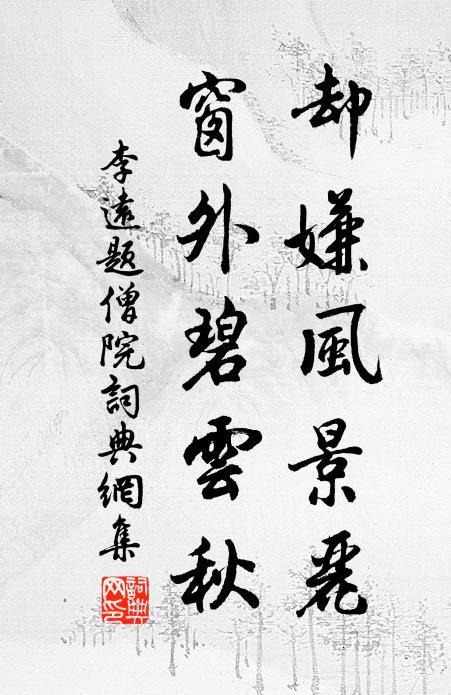 却嫌風景麗
窗外碧雲秋
李遠題僧院詞典網集
詞典網印